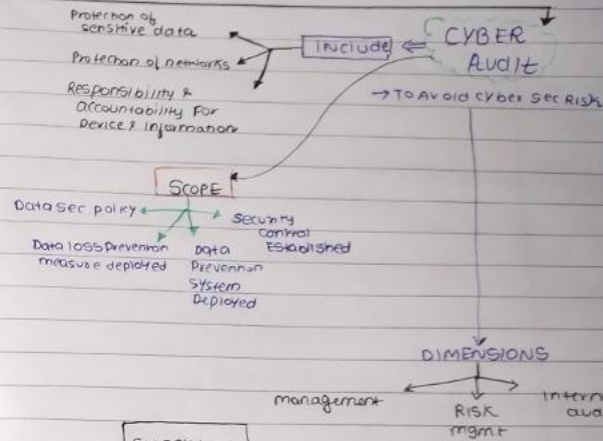 Protection of
sensitive data
Protection of networks
Responsibility &
accountability For
Device & Information
Include
CYBER
Audit
→ TO Avoid cyber sec Risk
SCOPE
Data sec policy
Data loss Prevention
measure deployed
Data
Prevention
System
Deployed
Security
control
Established
DIMENSIONS
management
RISK
mgmt
Intern
aud